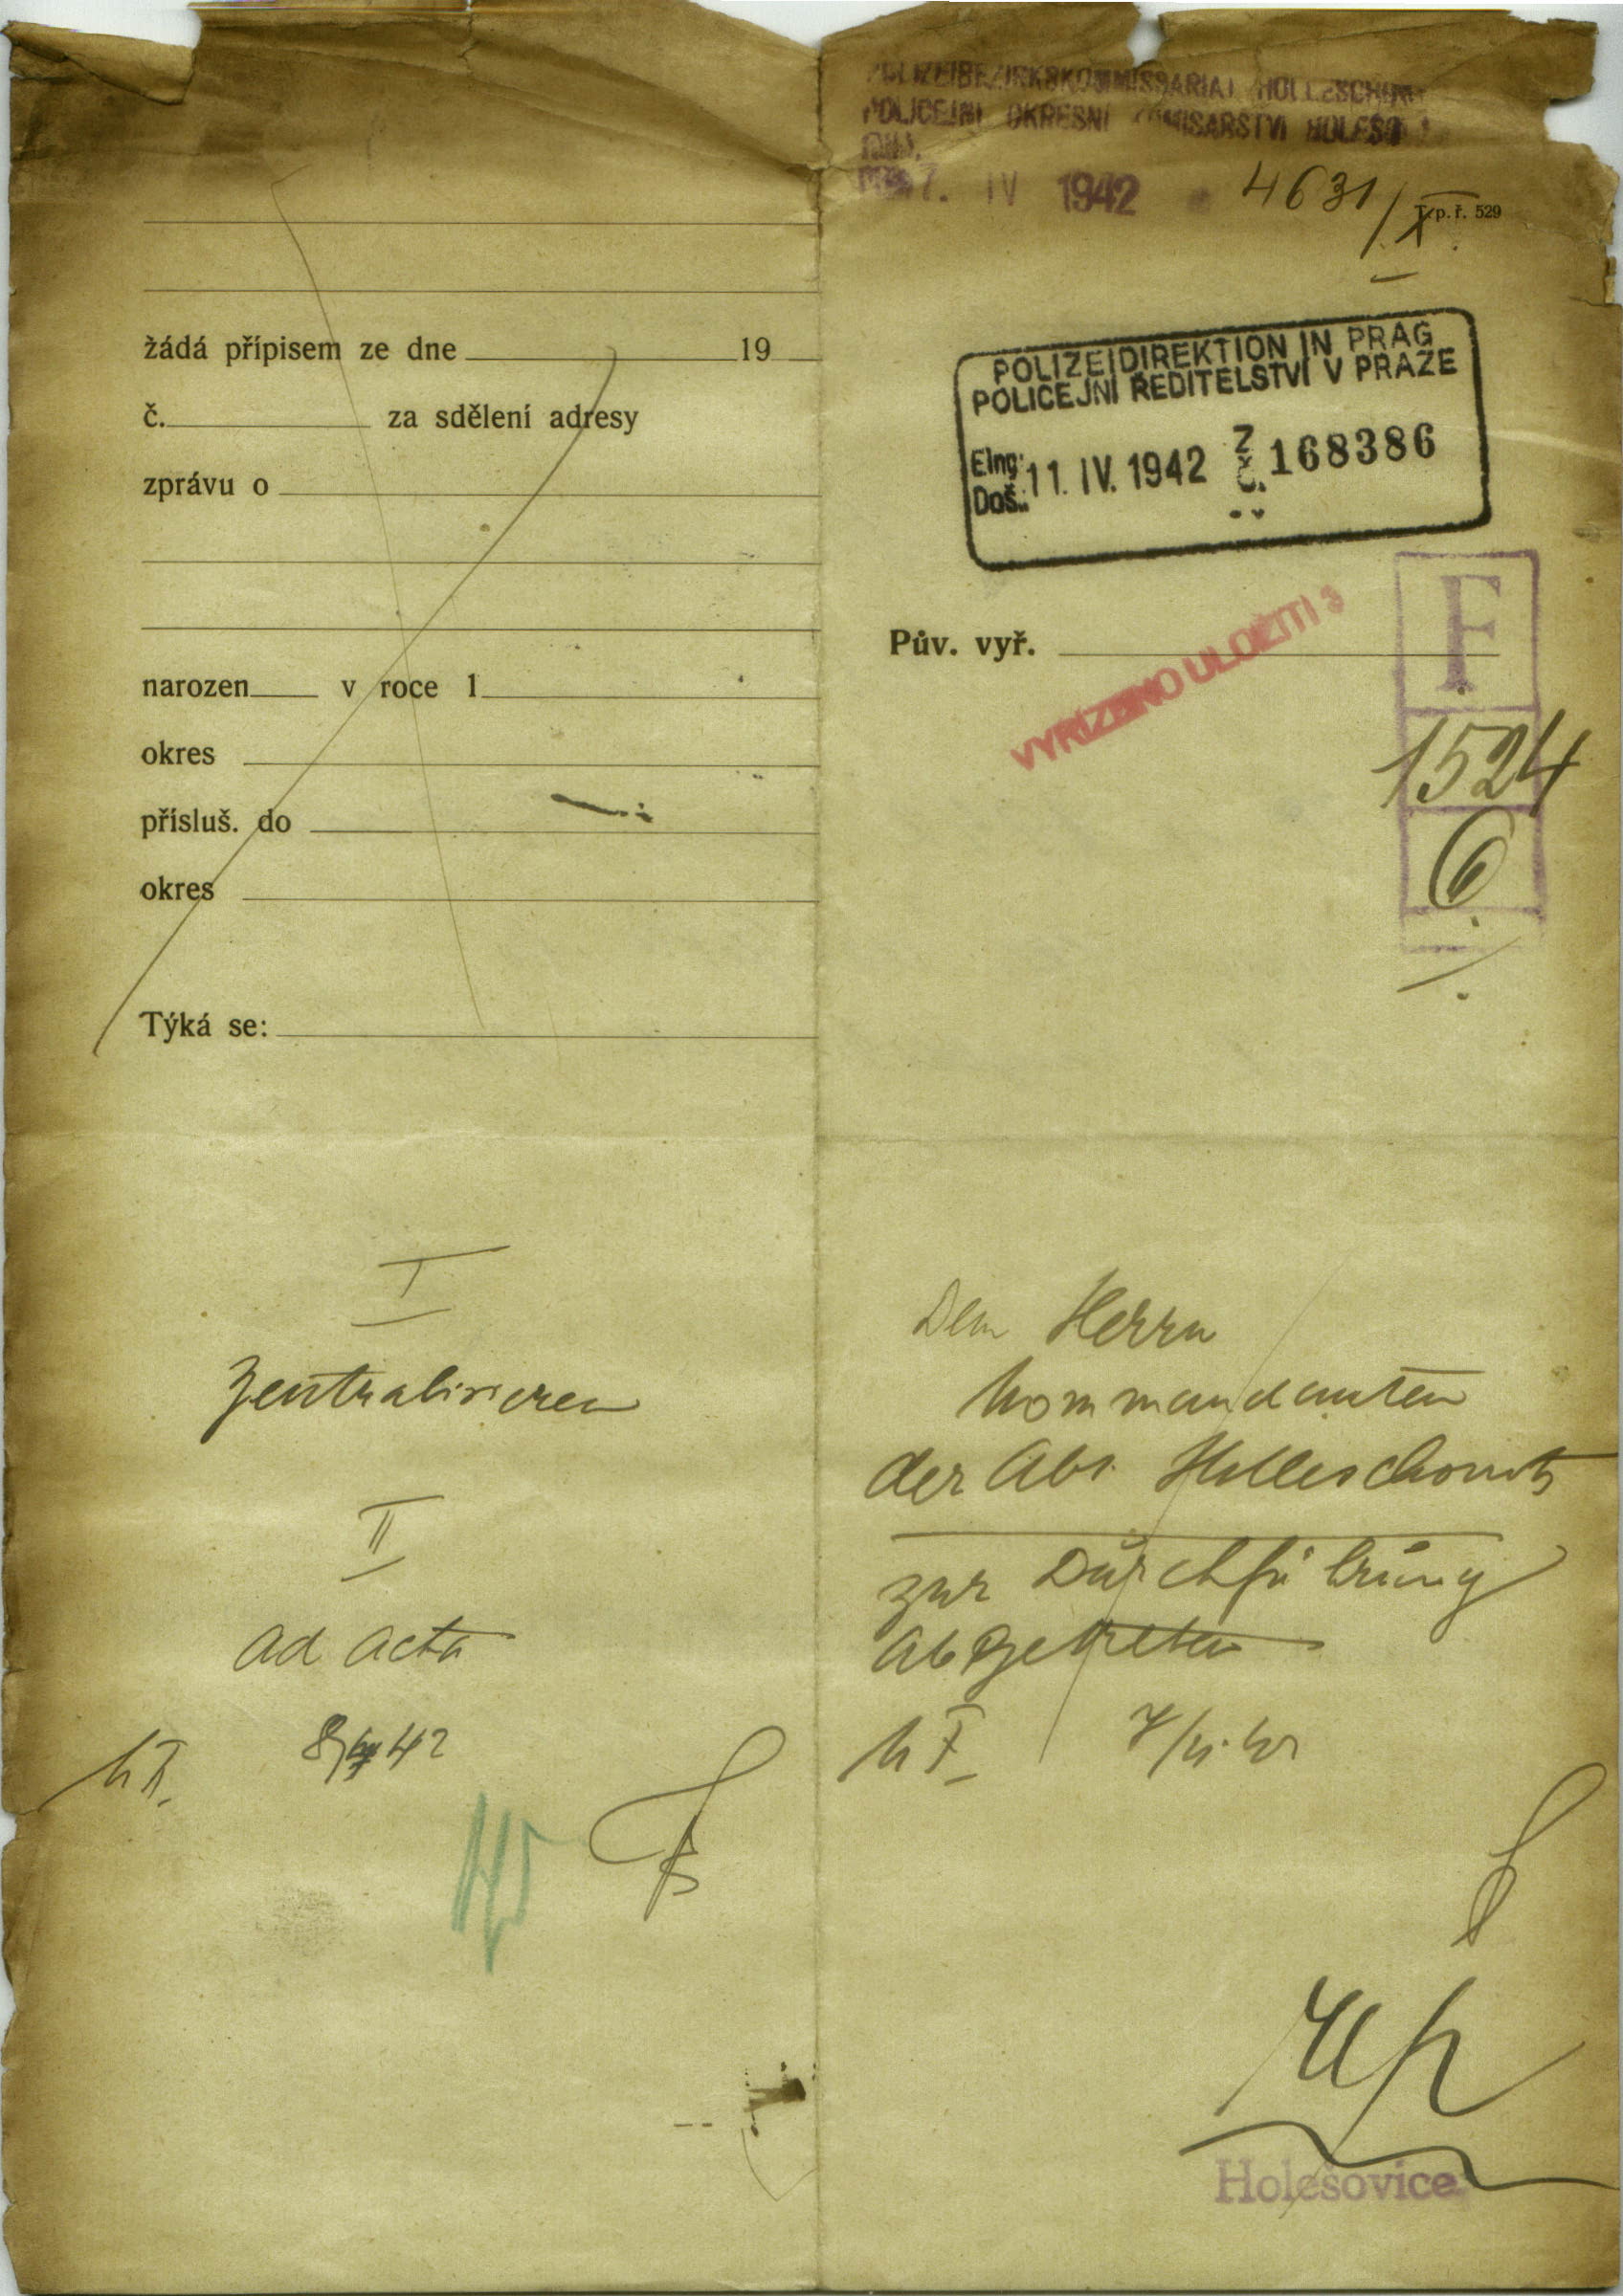 žádá přípisem ze dne 19
č. za sdělení adresy
zprávu o
narozen v roce 1
okres
přísluš. do
okres
Týká se:
I
Zentralisieren
II
ad acta
POLIZEIBEZIRKSKOMMISSARIAT
POLICEJNÍ OKRESNÍ
7. IV 1942 4631/
T. p. ř. 529
POLIZEIDIREKTION IN PRAG
POLICEJNÍ ŘEDITELSTVÍ V PRAZE
Eing.: Z
Doš.: 11. IV. 1942 Č. 168386
Pův. vyř.
VYŘÍZENO ULOŽITI 3
F
1524
6
Dem Herrn
Kommandanten
der Abt. Holleschowitz
zur Durchführung
abgetreten
Holešovice